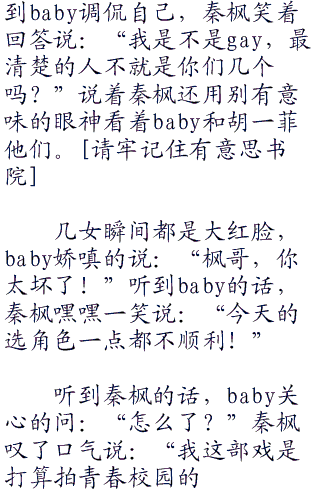 到baby调侃自己，秦枫笑着
回答说：“我是不是gay，最
清楚的人不就是你们几个
吗？”说着秦枫还用别有意
味的眼神看着baby和胡一菲
他们。[请牢记住有意思书
院]
几女瞬间都是大红脸，
baby娇嗔的说：“枫哥，你
太坏了！”听到baby的话，
秦枫嘿嘿一笑说：“今天的
选角色一点都不顺利！”
听到秦枫的话，baby关
心的问：“怎么了？”秦枫
叹了口气说：“我这部戏是
打算拍青春校园的